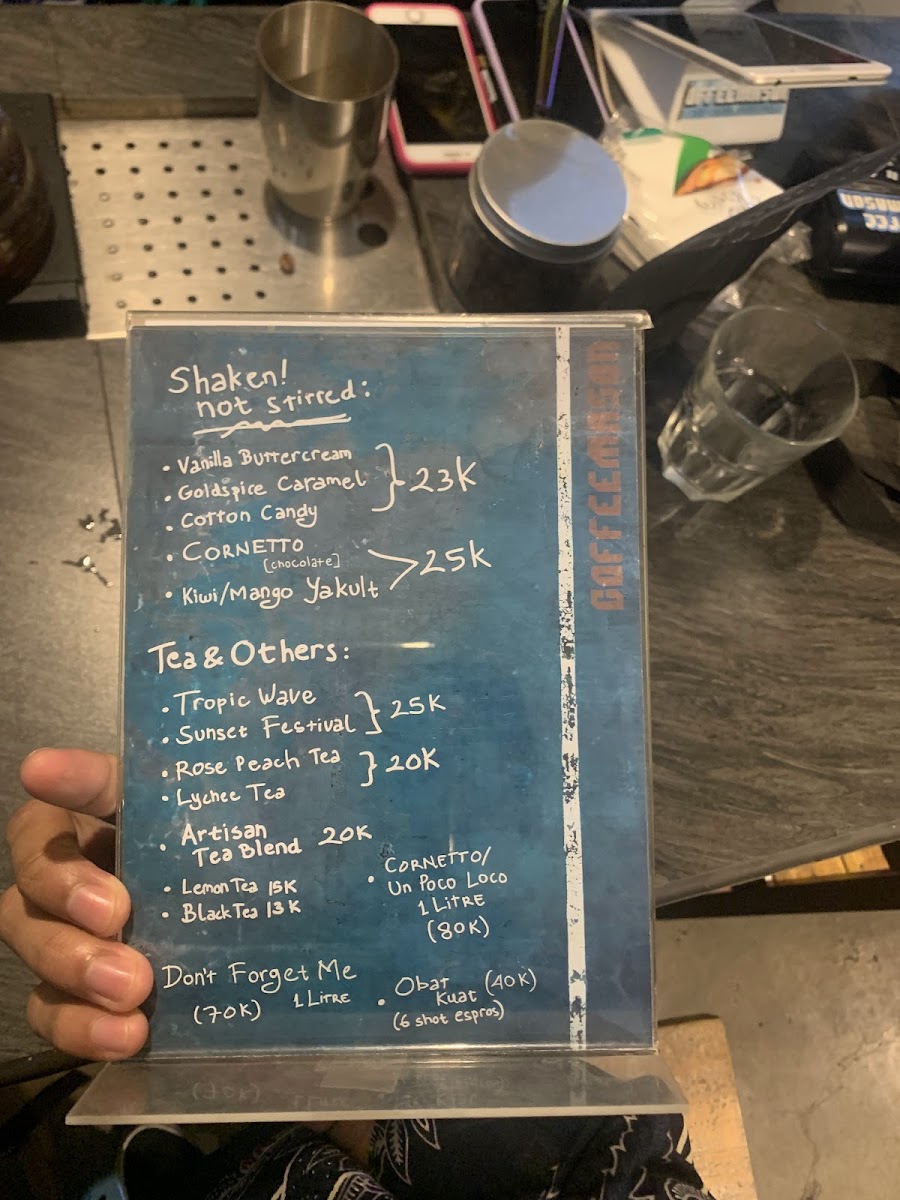 Shaken!
not stirred:
• Vanilla Buttercream
• Goldspice Caramel } 23K
• Cotton Candy
• CORNETTO
[chocolate] > 25K
• Kiwi/Mango Yakult
Tea & Others:
• Tropic Wave
• Sunset Festival } 25K
• Rose Peach Tea
• Lychee Tea } 20K
• Artisan
Tea Blend 20K
• Lemon Tea 15K
• Black Tea 13K
• CORNETTO/
Un Poco Loco
1 LITRE
(80K)
Don't Forget Me
(70K) 1 LITRE
• Obat
Kuat (40K)
(6 shot espros)
COFFEEMASON